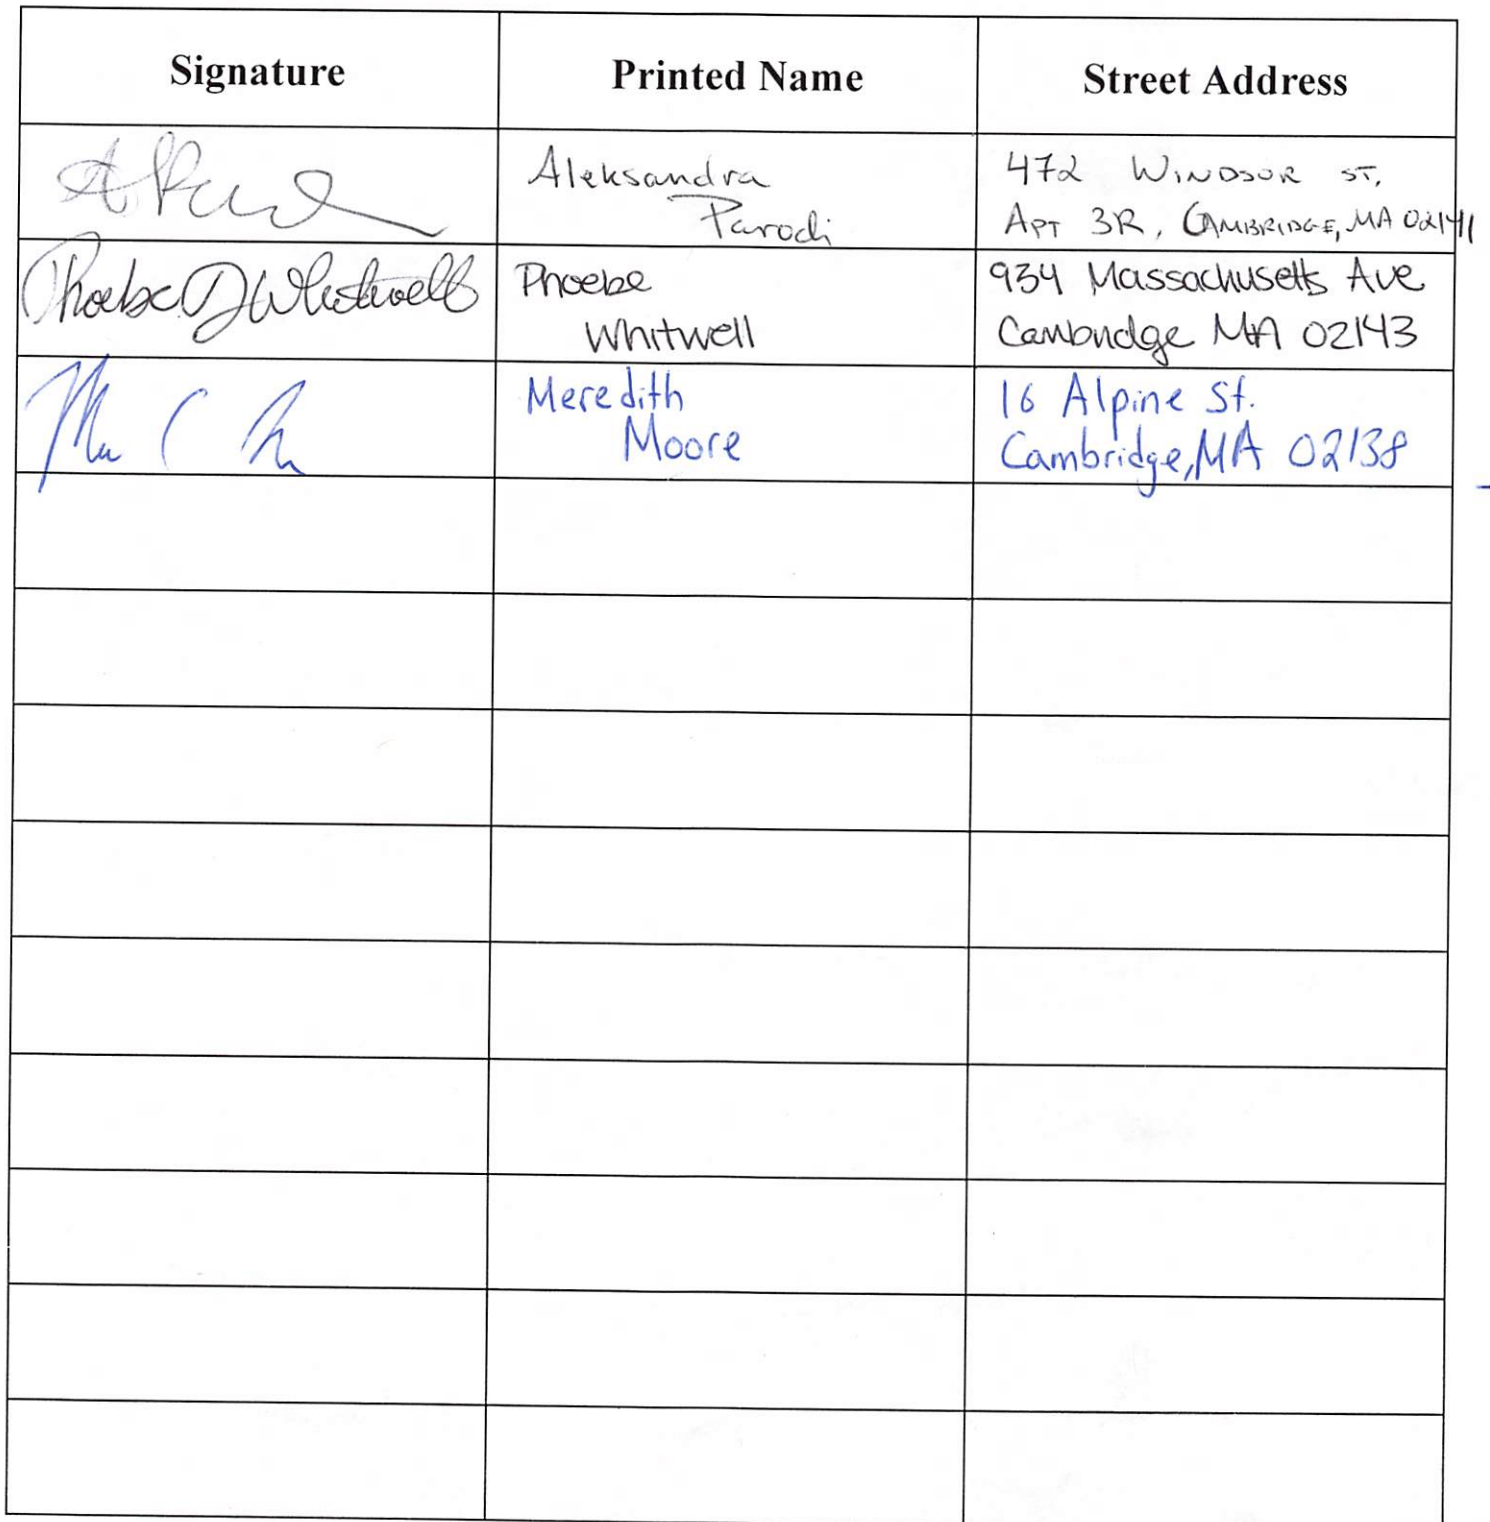 Signature Printed Name Street Address
Aleksandra
Parodi
472 WINDSOR ST,
APT 3R, CAMBRIDGE, MA 02141
Phoebe D Whitwell
Phoebe
Whitwell
934 Massachusetts Ave
Cambridge MA 02143
Meredith
Moore
16 Alpine St.
Cambridge, MA 02138